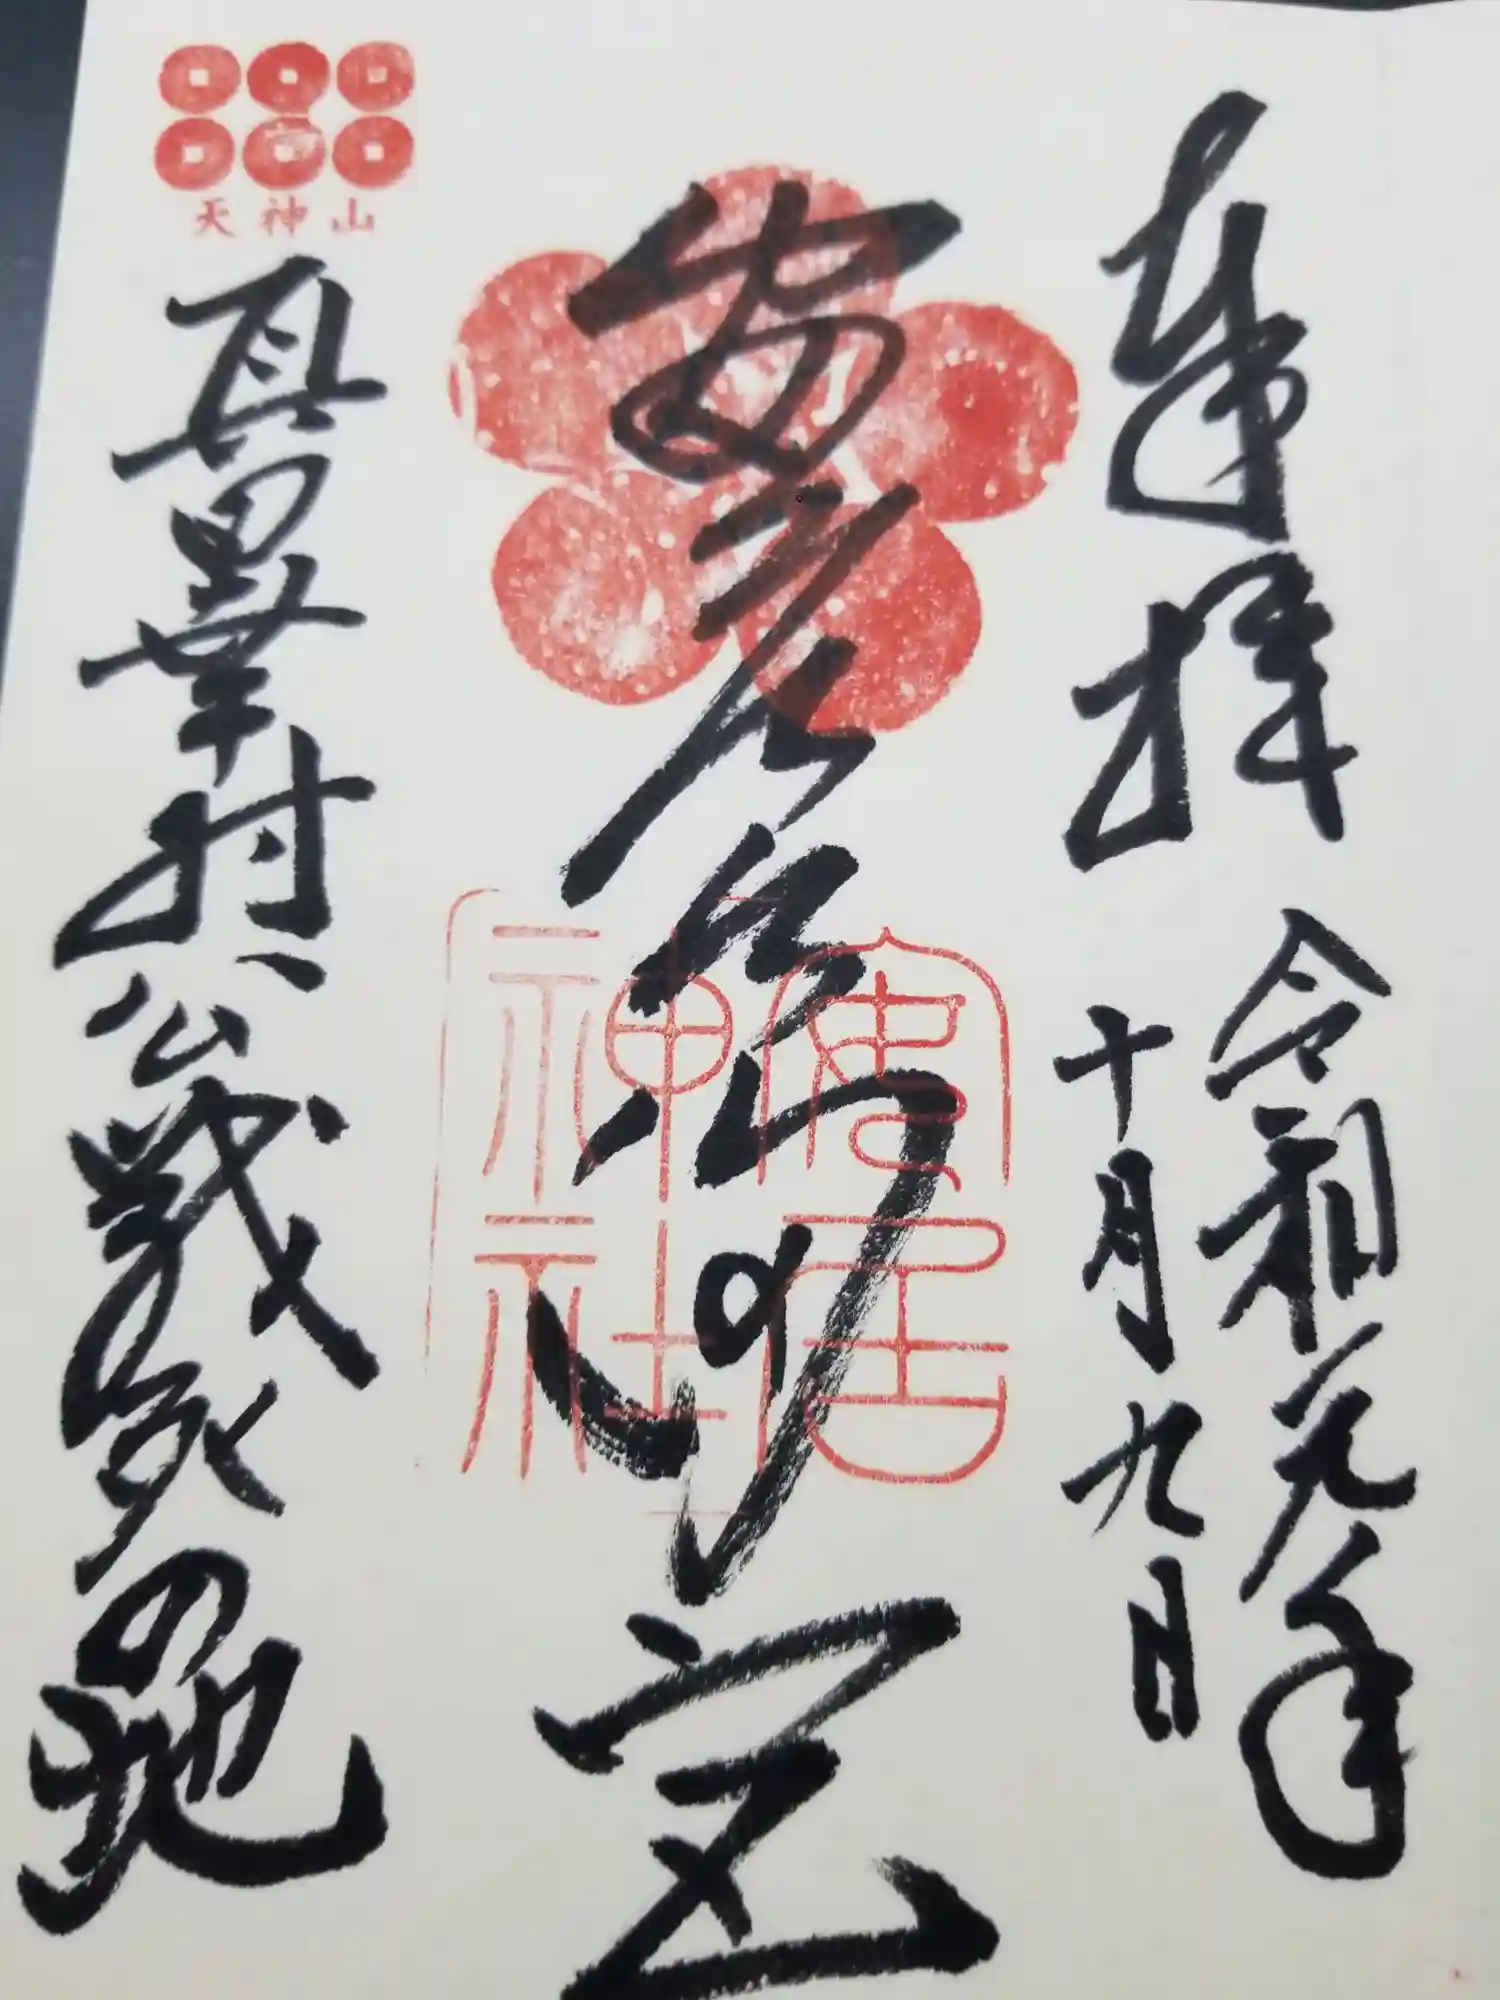 奉拝
令和元年
十月九日
安居
安居
神社
天神山
真田幸村公戦死の地